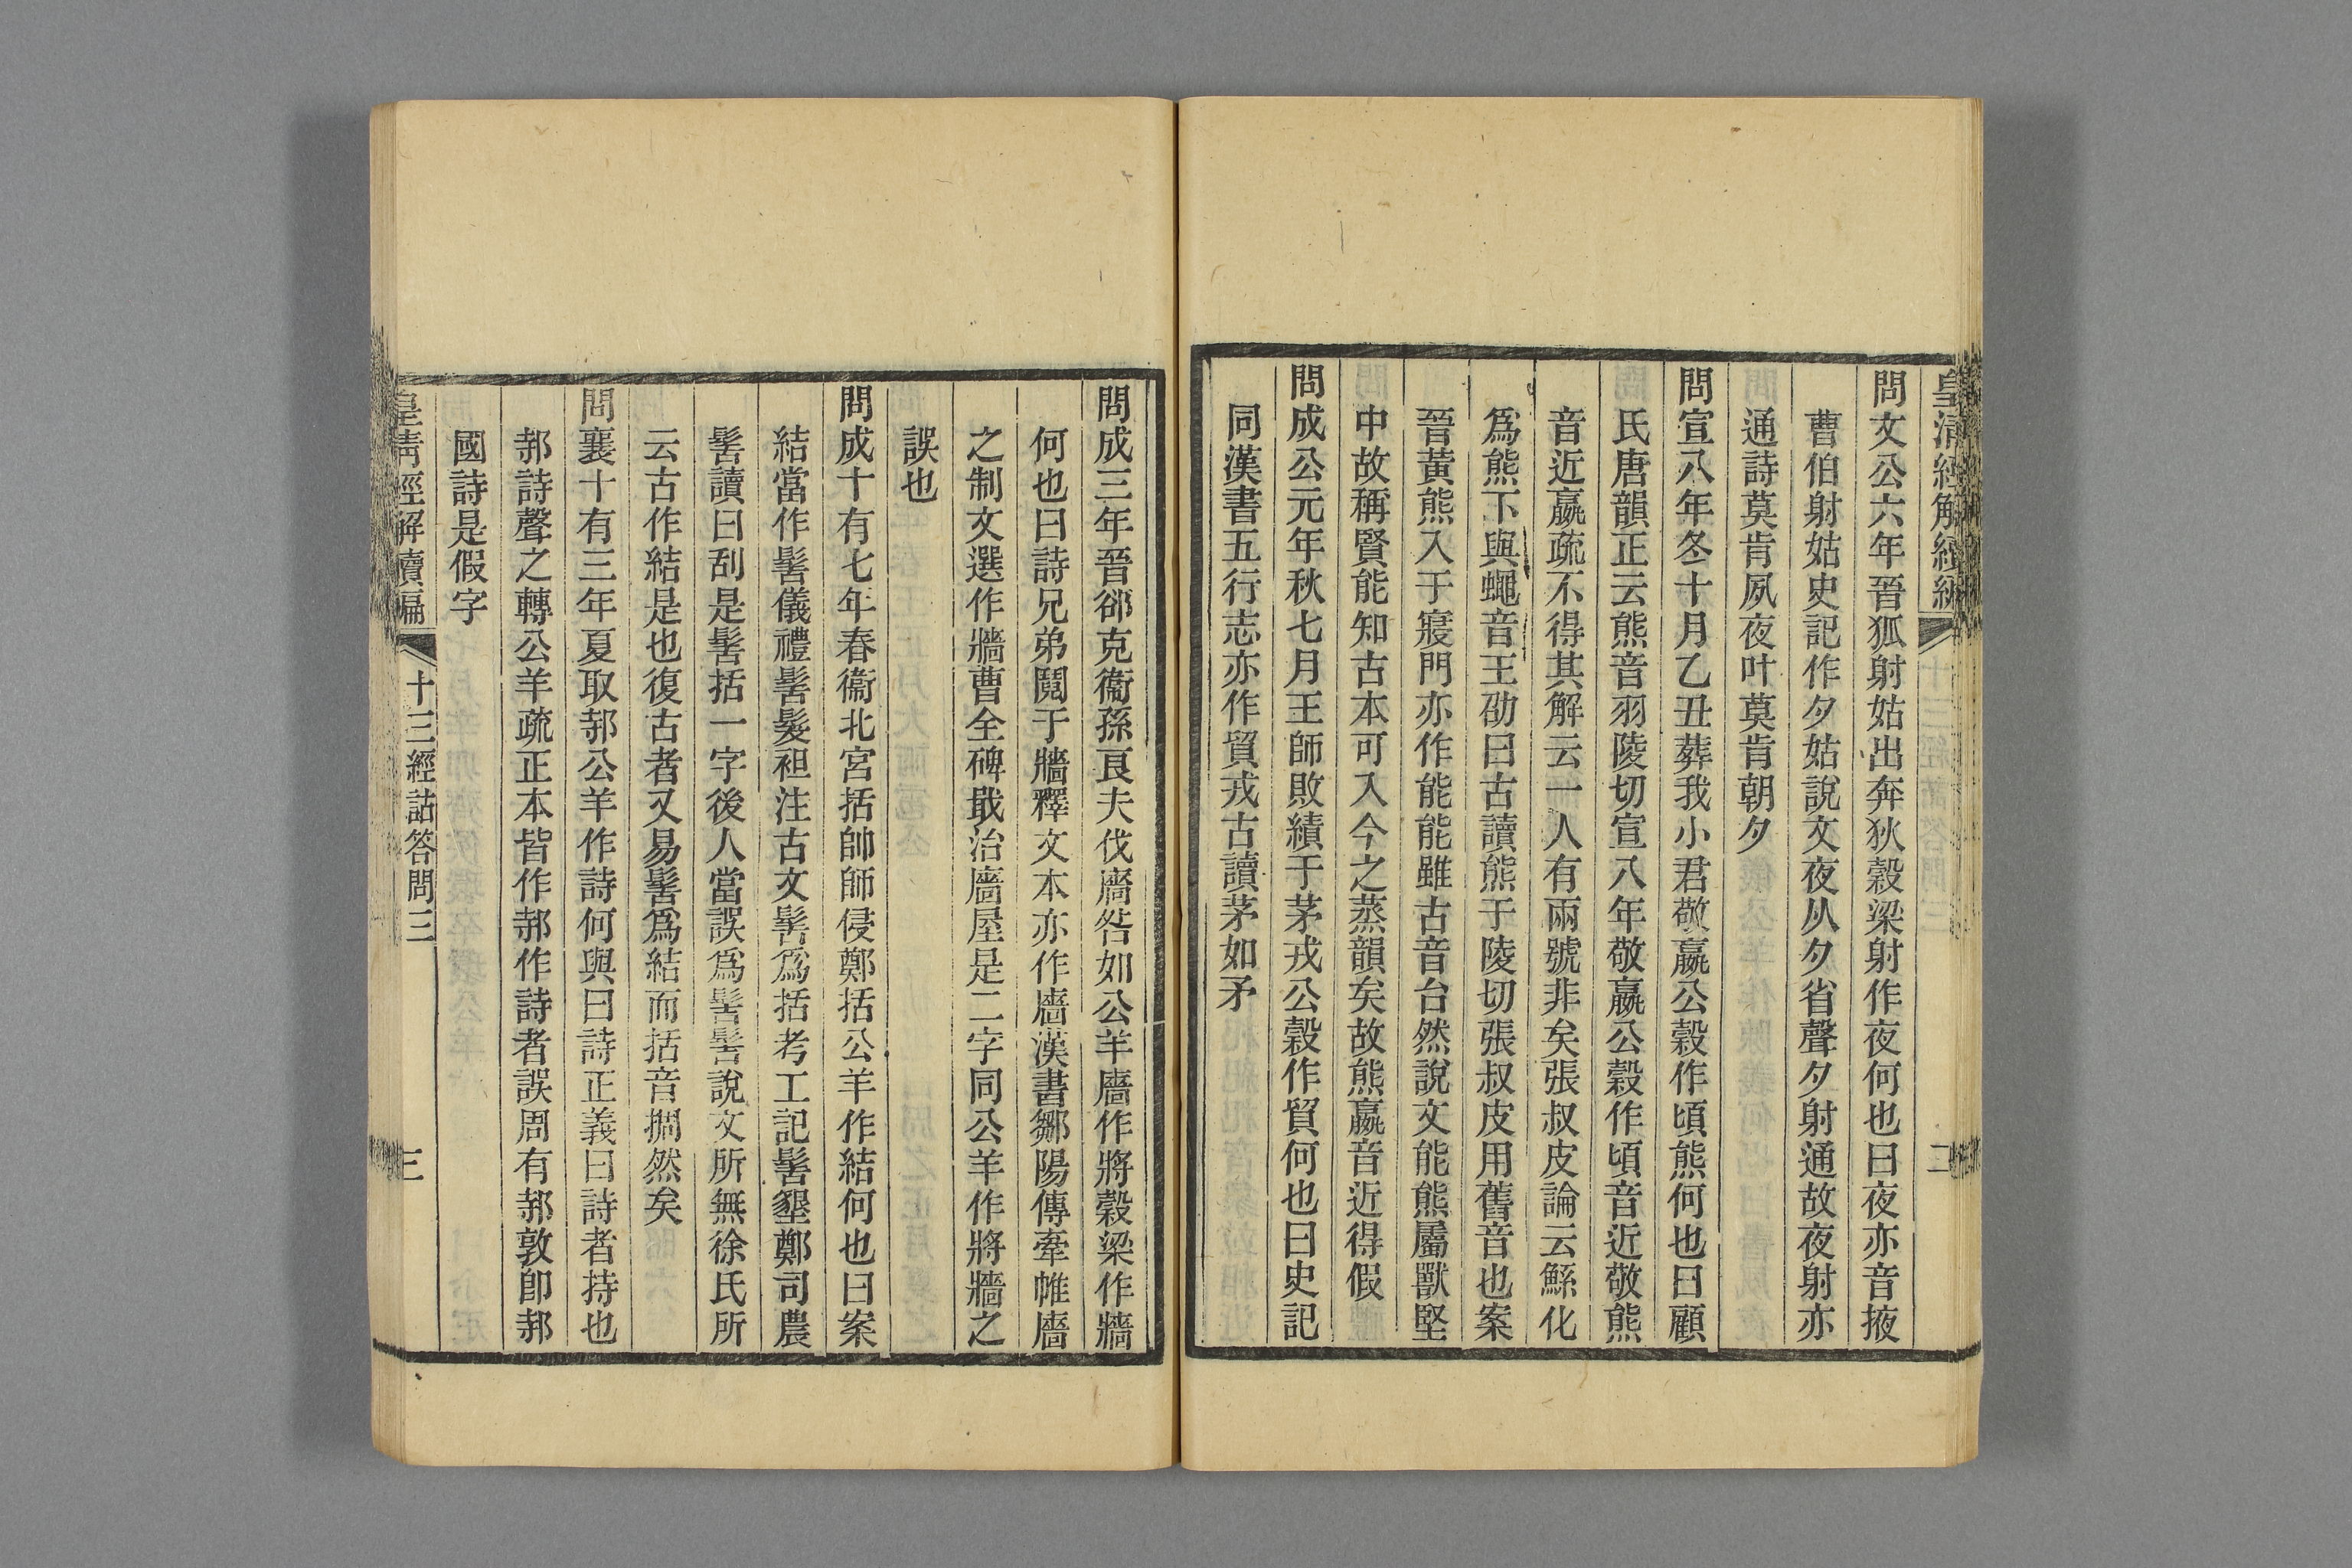 皇清經解續編
二
問文公六年晉狐射姑出奔狄穀梁射作夜何也曰夜亦音掖
曹伯射姑史記作夕姑說文夜从夕省聲夕射通故夜射亦
通詩莫肯夙夜叶莫肯朝夕
問宣八年冬十月乙丑葬我小君敬嬴公穀作頃熊何也曰顧
氏唐韻正云熊音羽陵切宣八年敬嬴公穀作頃音近敬熊
音近嬴疏不得其解云一人有兩號非矣張叔皮論云鯀化
為熊下與蠅音王劭曰古讀熊于陵切張叔皮用舊音也案
晉黃熊入于寢門亦作能能雖古音台然說文能熊屬獸堅
中故稱賢能知古本可入今之蒸韻矣故熊嬴音近得假
問成公元年秋七月王師敗績于茅戎公穀作貿何也曰史記
同漢書五行志亦作貿戎古讀茅如矛
問成三年晉郤克衞孫良夫伐廧咎如公羊廧作將穀梁作牆
何也曰詩兄弟鬩于牆釋文本亦作廧漢書鄒陽傳牽帷廧
之制文選作牆曹全碑戢治廧屋是二字同公羊作將牆之
誤也
問成十有七年春衞北宮括帥師侵鄭括公羊作結何也曰案
結當作髺儀禮髺髮袒注古文髺為括考工記髺墾鄭司農
髺讀曰刮是髺括一字後人當誤為髻髻說文所無徐氏所
云古作結是也復古者又易髺為結而括音捫然矣
問襄十有三年夏取邿公羊作詩何與曰詩正義曰詩者持也
邿詩聲之轉公羊疏正本皆作邿作詩者誤周有邿敦卽邿
國詩是假字
皇清經解續編
十三經詁答問三
三